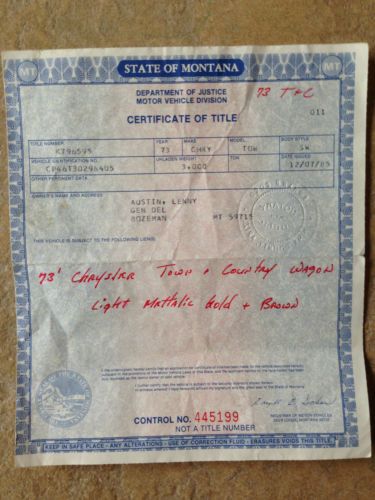 MT
STATE OF MONTANA
MT
DEPARTMENT OF JUSTICE
MOTOR VEHICLE DIVISION
73 T+C
CERTIFICATE OF TITLE
011
TITLE NUMBER YEAR MAKE MODEL BODY STYLE
K796595 73 CHRY TOW SW
VEHICLE IDENTIFICATION NUMBER UNLADEN WEIGHT TON DATE ISSUED
CP46T3D296405 3,000 12/07/85
OTHER PERTINENT DATA
OWNER'S NAME AND ADDRESS
AUSTIN, LENNY
GEN DEL
BOZEMAN MT 59715
THIS VEHICLE IS SUBJECT TO THE FOLLOWING LIENS:
73' CHRYSTER TOWN + COUNTRY WAGON
Light MATTALIC Gold + BROWN
CONTROL NO. 445199
NOT A TITLE NUMBER
REGISTRAR OF MOTOR VEHICLES
DEER LODGE, MONTANA 59722
KEEP IN SAFE PLACE - ANY ALTERATIONS - USE OF CORRECTION FLUID - ERASURES VOIDS THIS TITLE